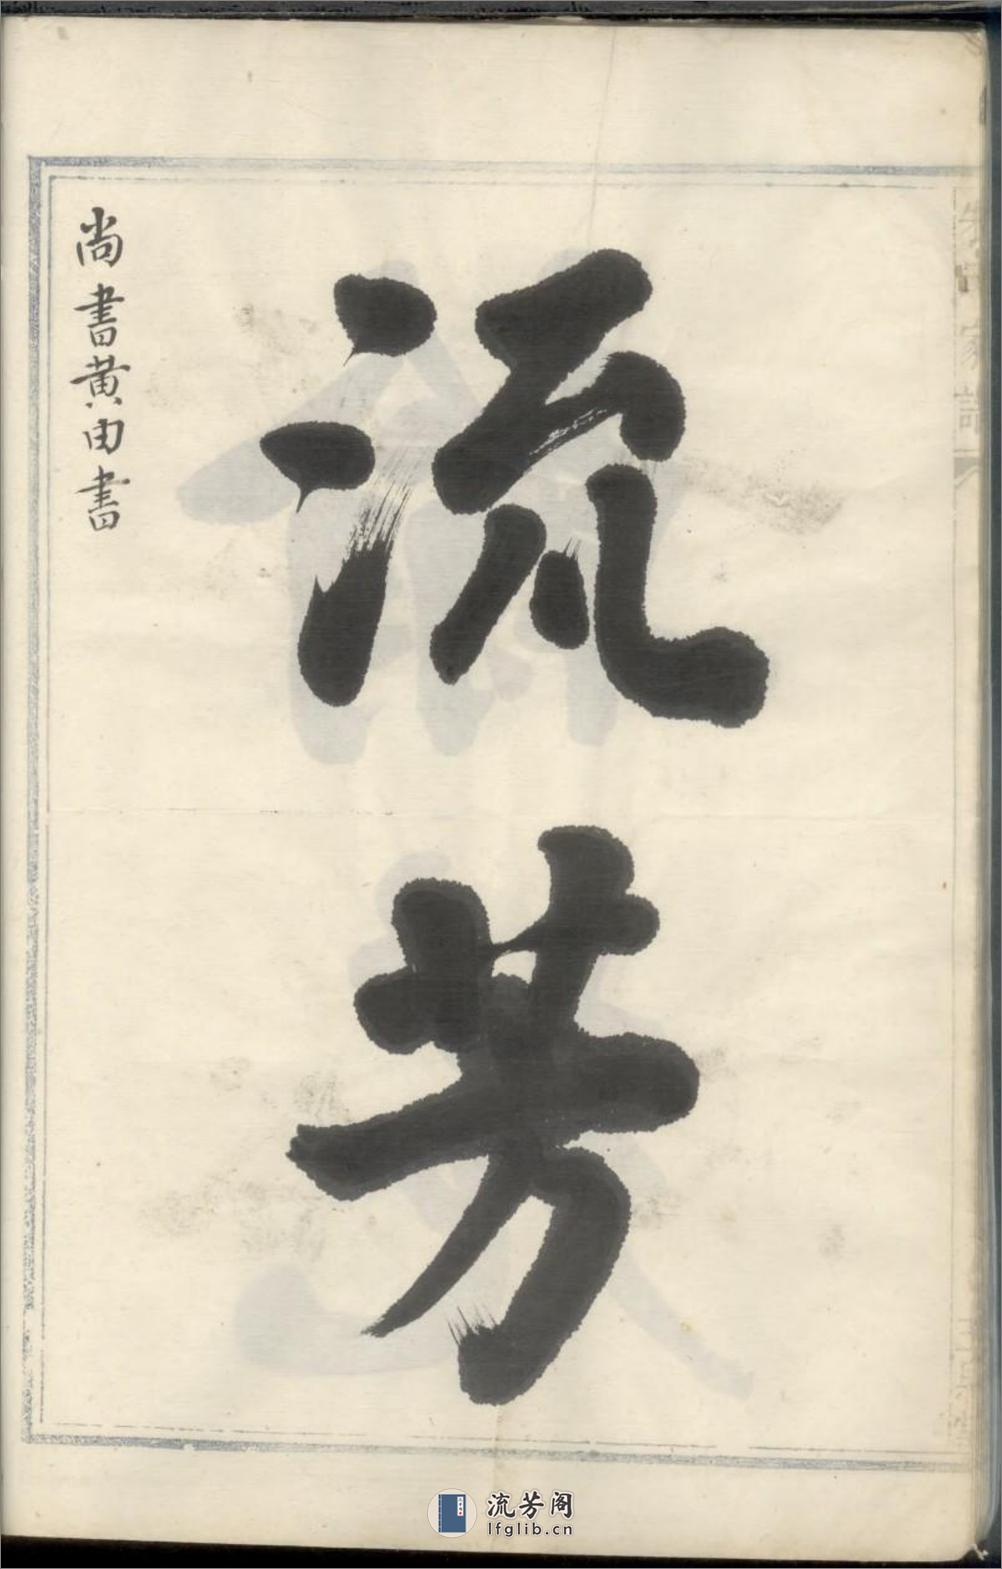 流芳
尚書黄由書
流芳阁
lfglib.cn